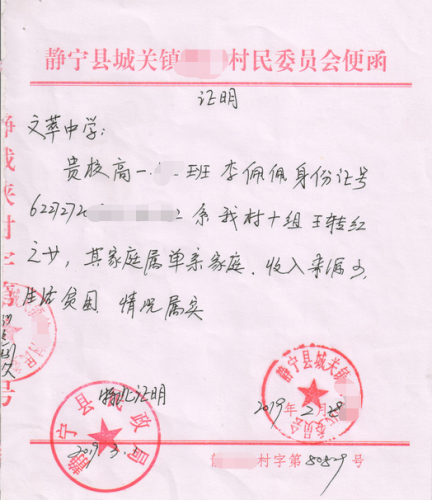 静宁县城关镇 村民委员会便函
证明
文萃中学:
贵校高一 班 李佩佩身份证号
62272720 2 系我村十组 王转红
之女, 其家庭属单亲家庭. 收入来源少,
生活贫困 情况属实
特此证明
静宁县城关镇
委员会
2019年2月28
静宁县 政局
2019.3.
村字第80509号